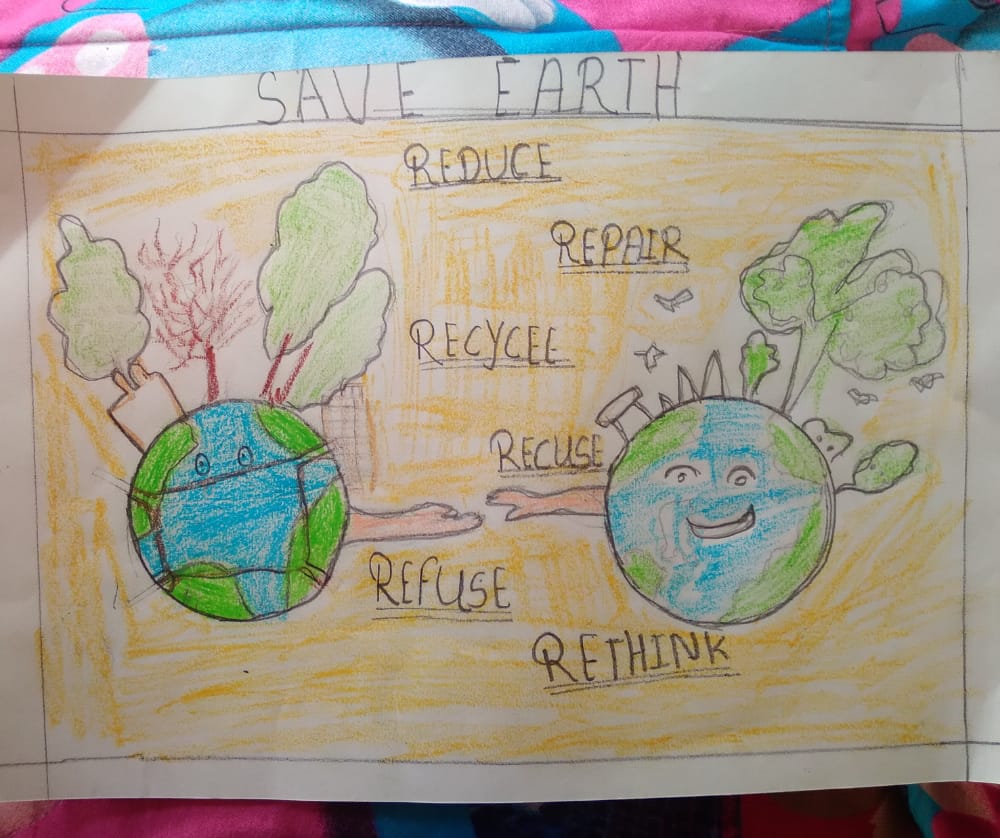 SAVE EARTH
REDUCE
REPAIR
RECYCEL
RECUSE
REFUSE
RETHINK